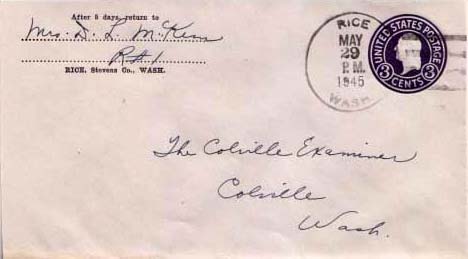 After 5 days, return to
Mrs. D. L. McKern
R#1
RICE, Stevens Co., WASH.
RICE
MAY
29
P.M.
1945
WASH.
UNITED STATES POSTAGE
3 CENTS 3
The Colville Examiner
Colville
Wash.